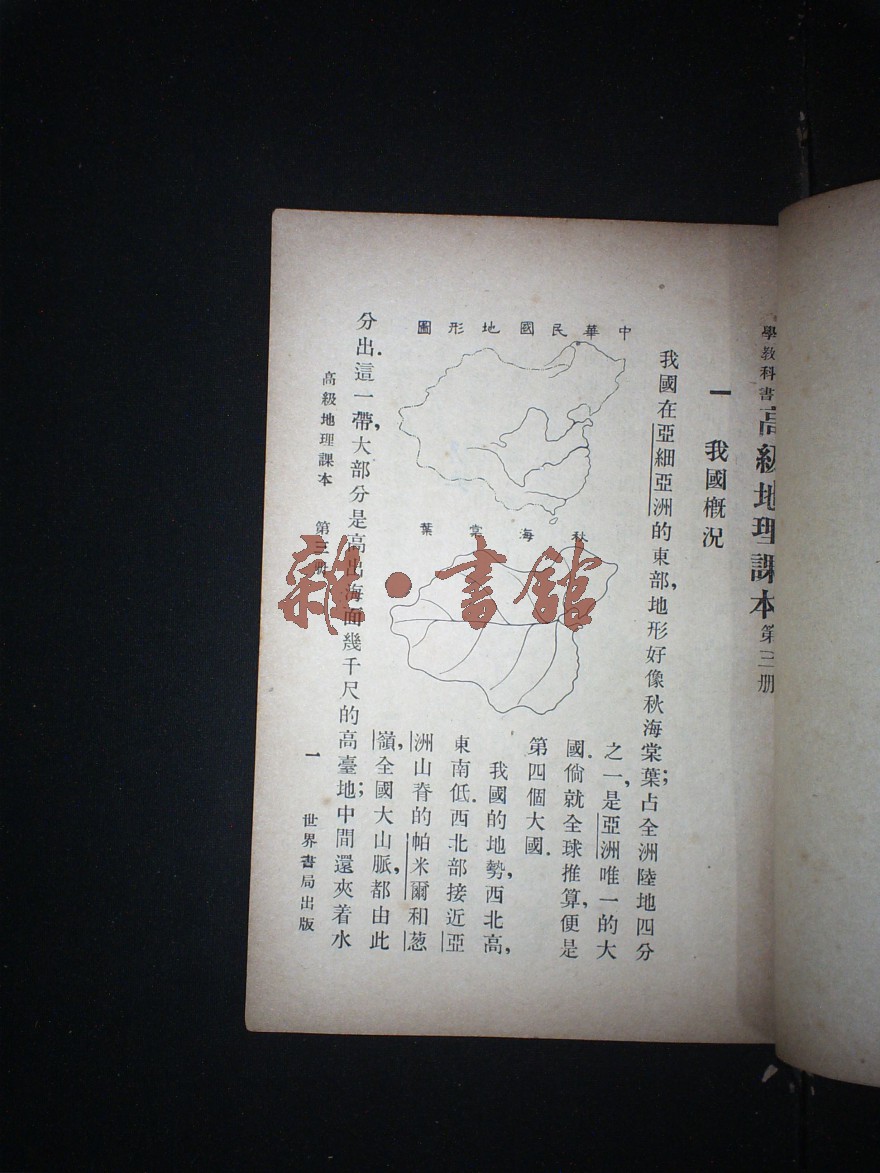 學教科書 高級地理課本 第三册
一 我國槪況
我國在亞細亞洲的東部,地形好像秋海棠葉;占全洲陸地四分
之一,是亞洲唯一的大
國.倘就全球推算,便是
第四個大國.
我國的地勢,西北高,
東南低.西北部接近亞
洲山脊的帕米爾和葱
嶺,全國大山脈,都由此
分出.這一帶,大部分是高出海面幾千尺的高臺地;中間還夾着水
中華民國地形圖
秋海棠葉
高級地理課本 第三册
一
世界書局出版
雜·書館